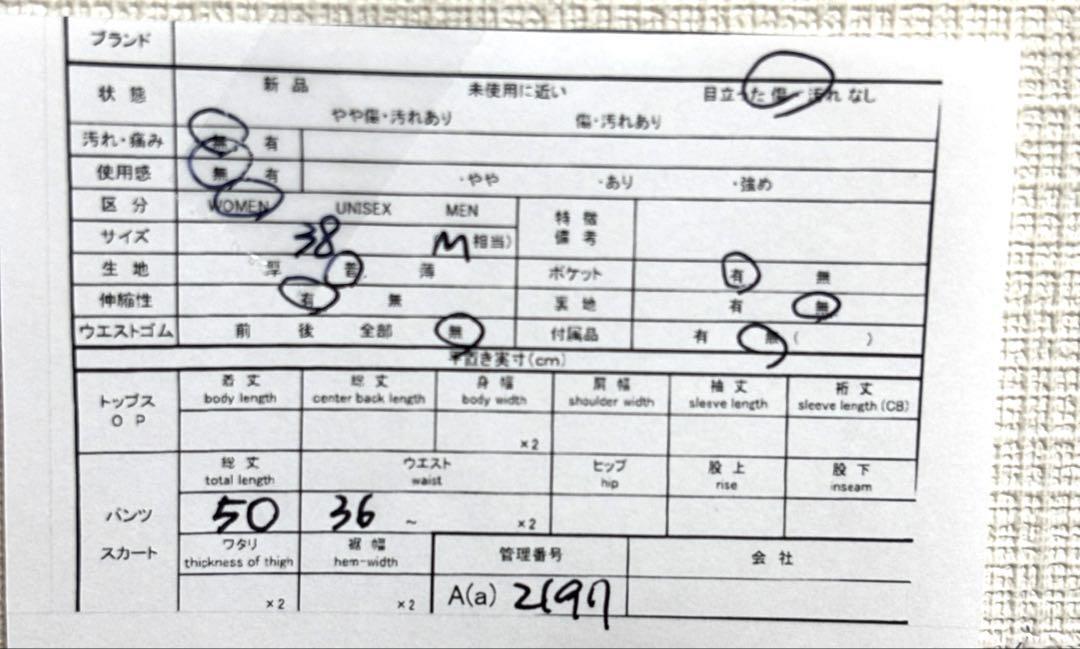 ブランド
状態 新品 未使用に近い 目立った傷・汚れなし
やや傷・汚れあり 傷・汚れあり
汚れ・痛み 無 有
使用感 無 有 ・やや ・あり ・強め
区分 WOMEN UNISEX MEN 特徴備考
サイズ 38 M相当)
生地 厚 普 薄 ポケット 有 無
伸縮性 有 無 裏地 有 無
ウエストゴム 前 後 全部 無 付属品 有 無 ( )
平置き実寸(cm)
トップス OP 着丈 総丈 身幅 肩幅 袖丈 裄丈
body length center back length body width shoulder width sleeve length sleeve length (CB)
×2
パンツ スカート 総丈 ウエスト ヒップ 股上 股下
total length waist hip rise inseam
50 36 ~ ×2
ワタリ 裾幅 管理番号 会社
thickness of thigh hem-width
×2 ×2 A(a) 2197